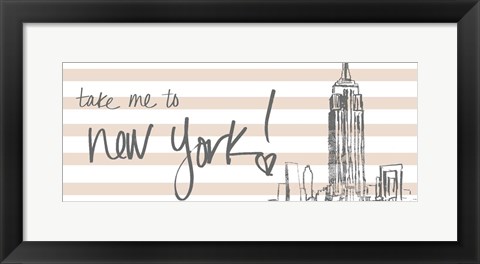 take me to
new york!